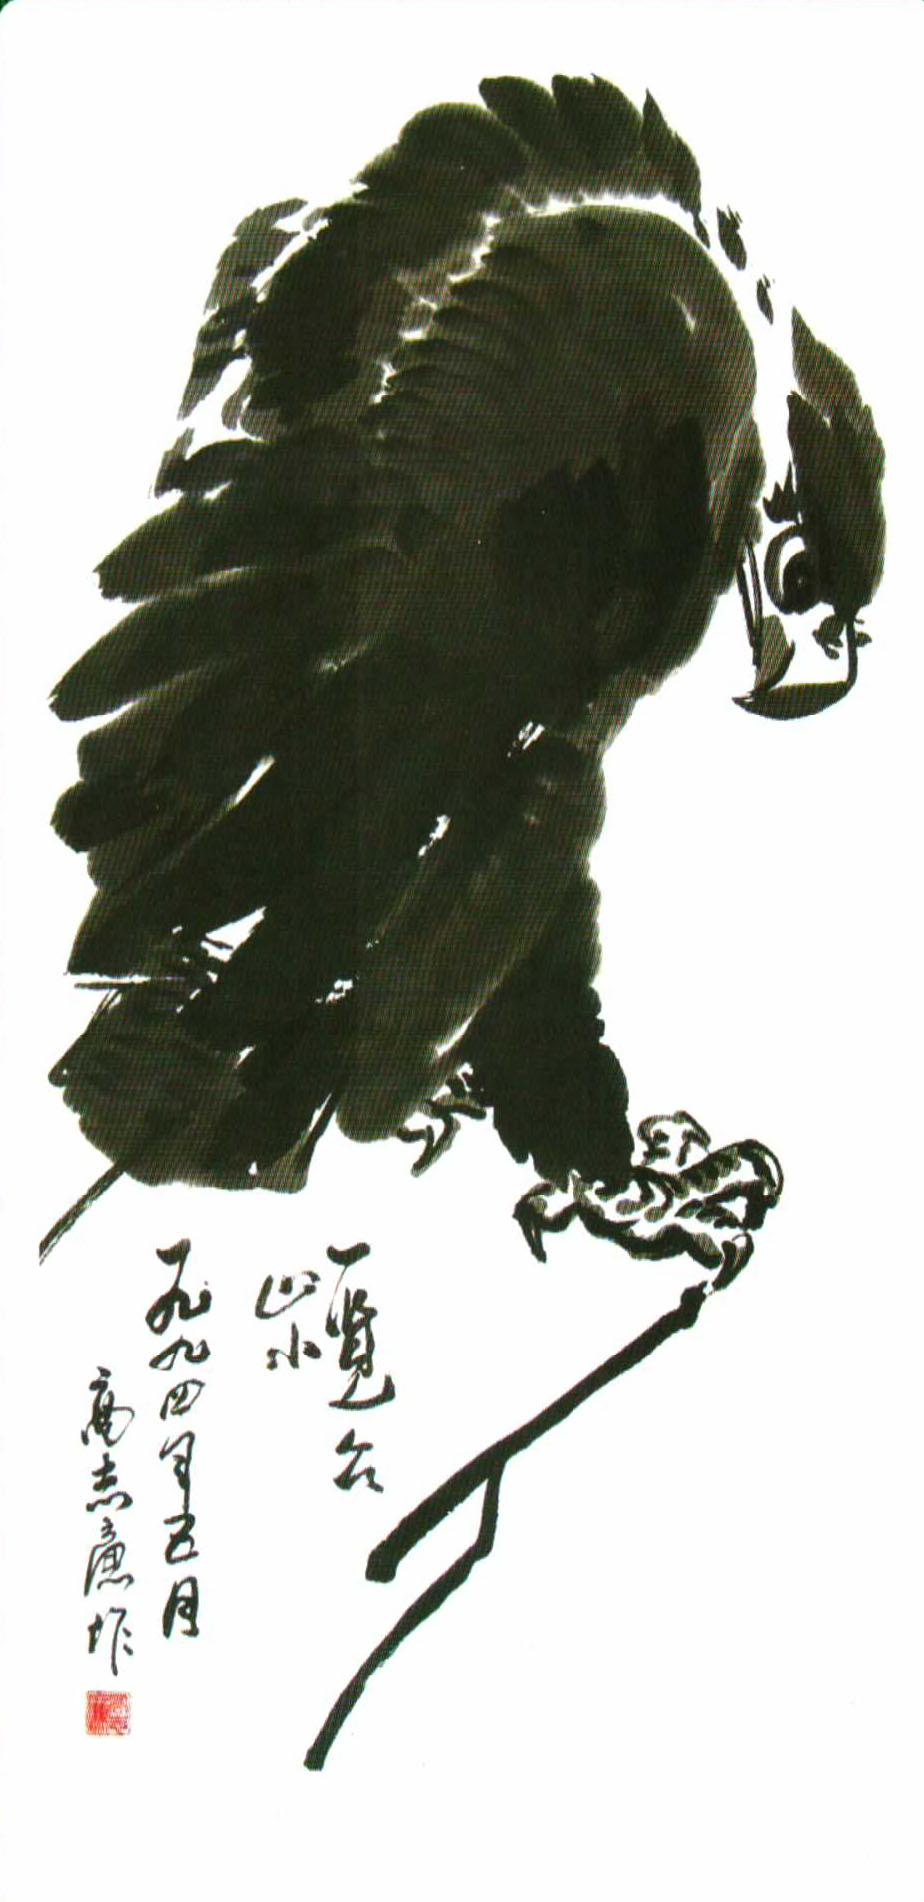 一覽众
山小
一九九四年五月
高志作